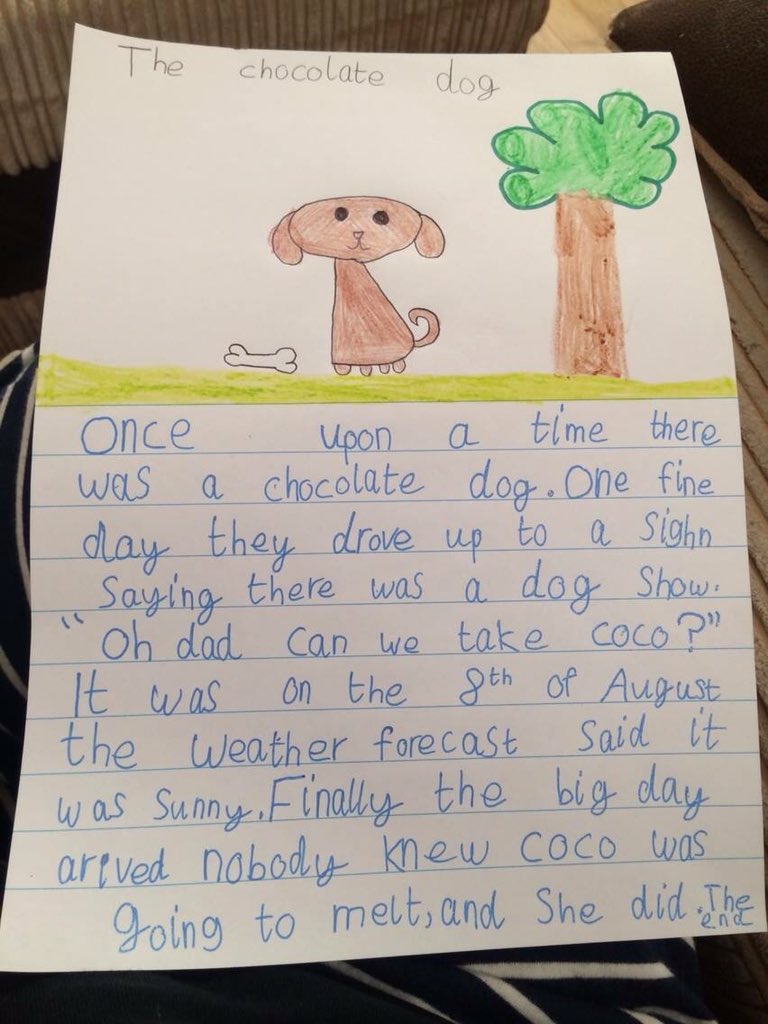 The chocolate dog
Once upon a time there
was a chocolate dog. One fine
day they drove up to a Sighn
Saying there was a dog Show.
"Oh dad can we take coco?"
It was on the 8th of August
the weather forecast Said it
was Sunny. Finally the big day
arived nobody knew coco was
going to melt, and She did. The
end